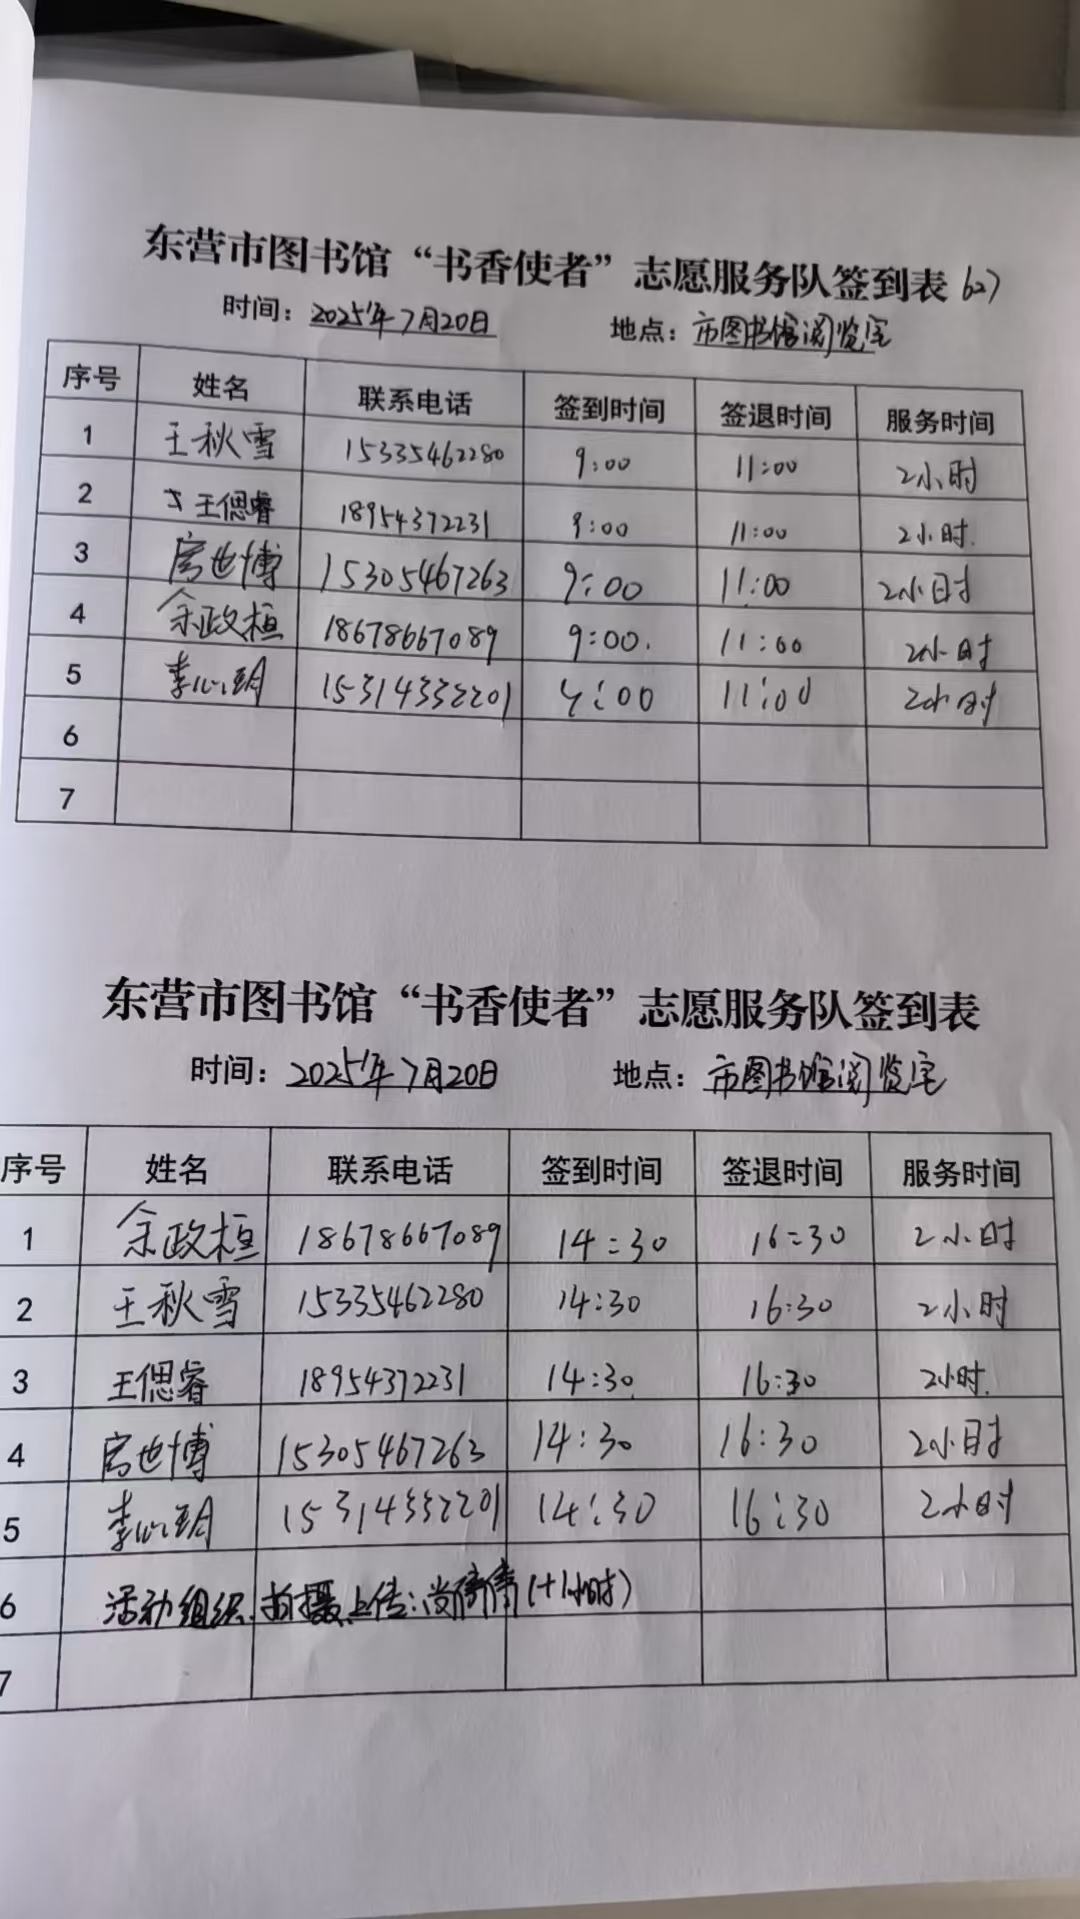 东营市图书馆“书香使者”志愿服务队签到表(2)
时间：2025年7月20日 地点：市图书馆阅览室
序号 姓名 联系电话 签到时间 签退时间 服务时间
1 王秋雪 15335462280 9:00 11:00 2小时
2 王偲睿 18954372231 9:00 11:00 2小时.
3 房世博 15305467263 9:00 11:00 2小时
4 余政桓 18678667089 9:00. 11:00 2小时
5 李心玥 15314332201 9:00 11:00 2小时
6
7
东营市图书馆“书香使者”志愿服务队签到表
时间：2025年7月20日 地点：市图书馆阅览室
序号 姓名 联系电话 签到时间 签退时间 服务时间
1 余政桓 18678667089 14:30 16:30 2小时
2 王秋雪 15335462280 14:30 16:30 2小时
3 王偲睿 18954372231 14:30. 16:30 2小时.
4 房世博 15305467263 14:30 16:30 2小时
5 李心玥 15314332201 14:30 16:30 2小时
6 活动组织、拍摄上传：尚倩倩(+1小时)
7